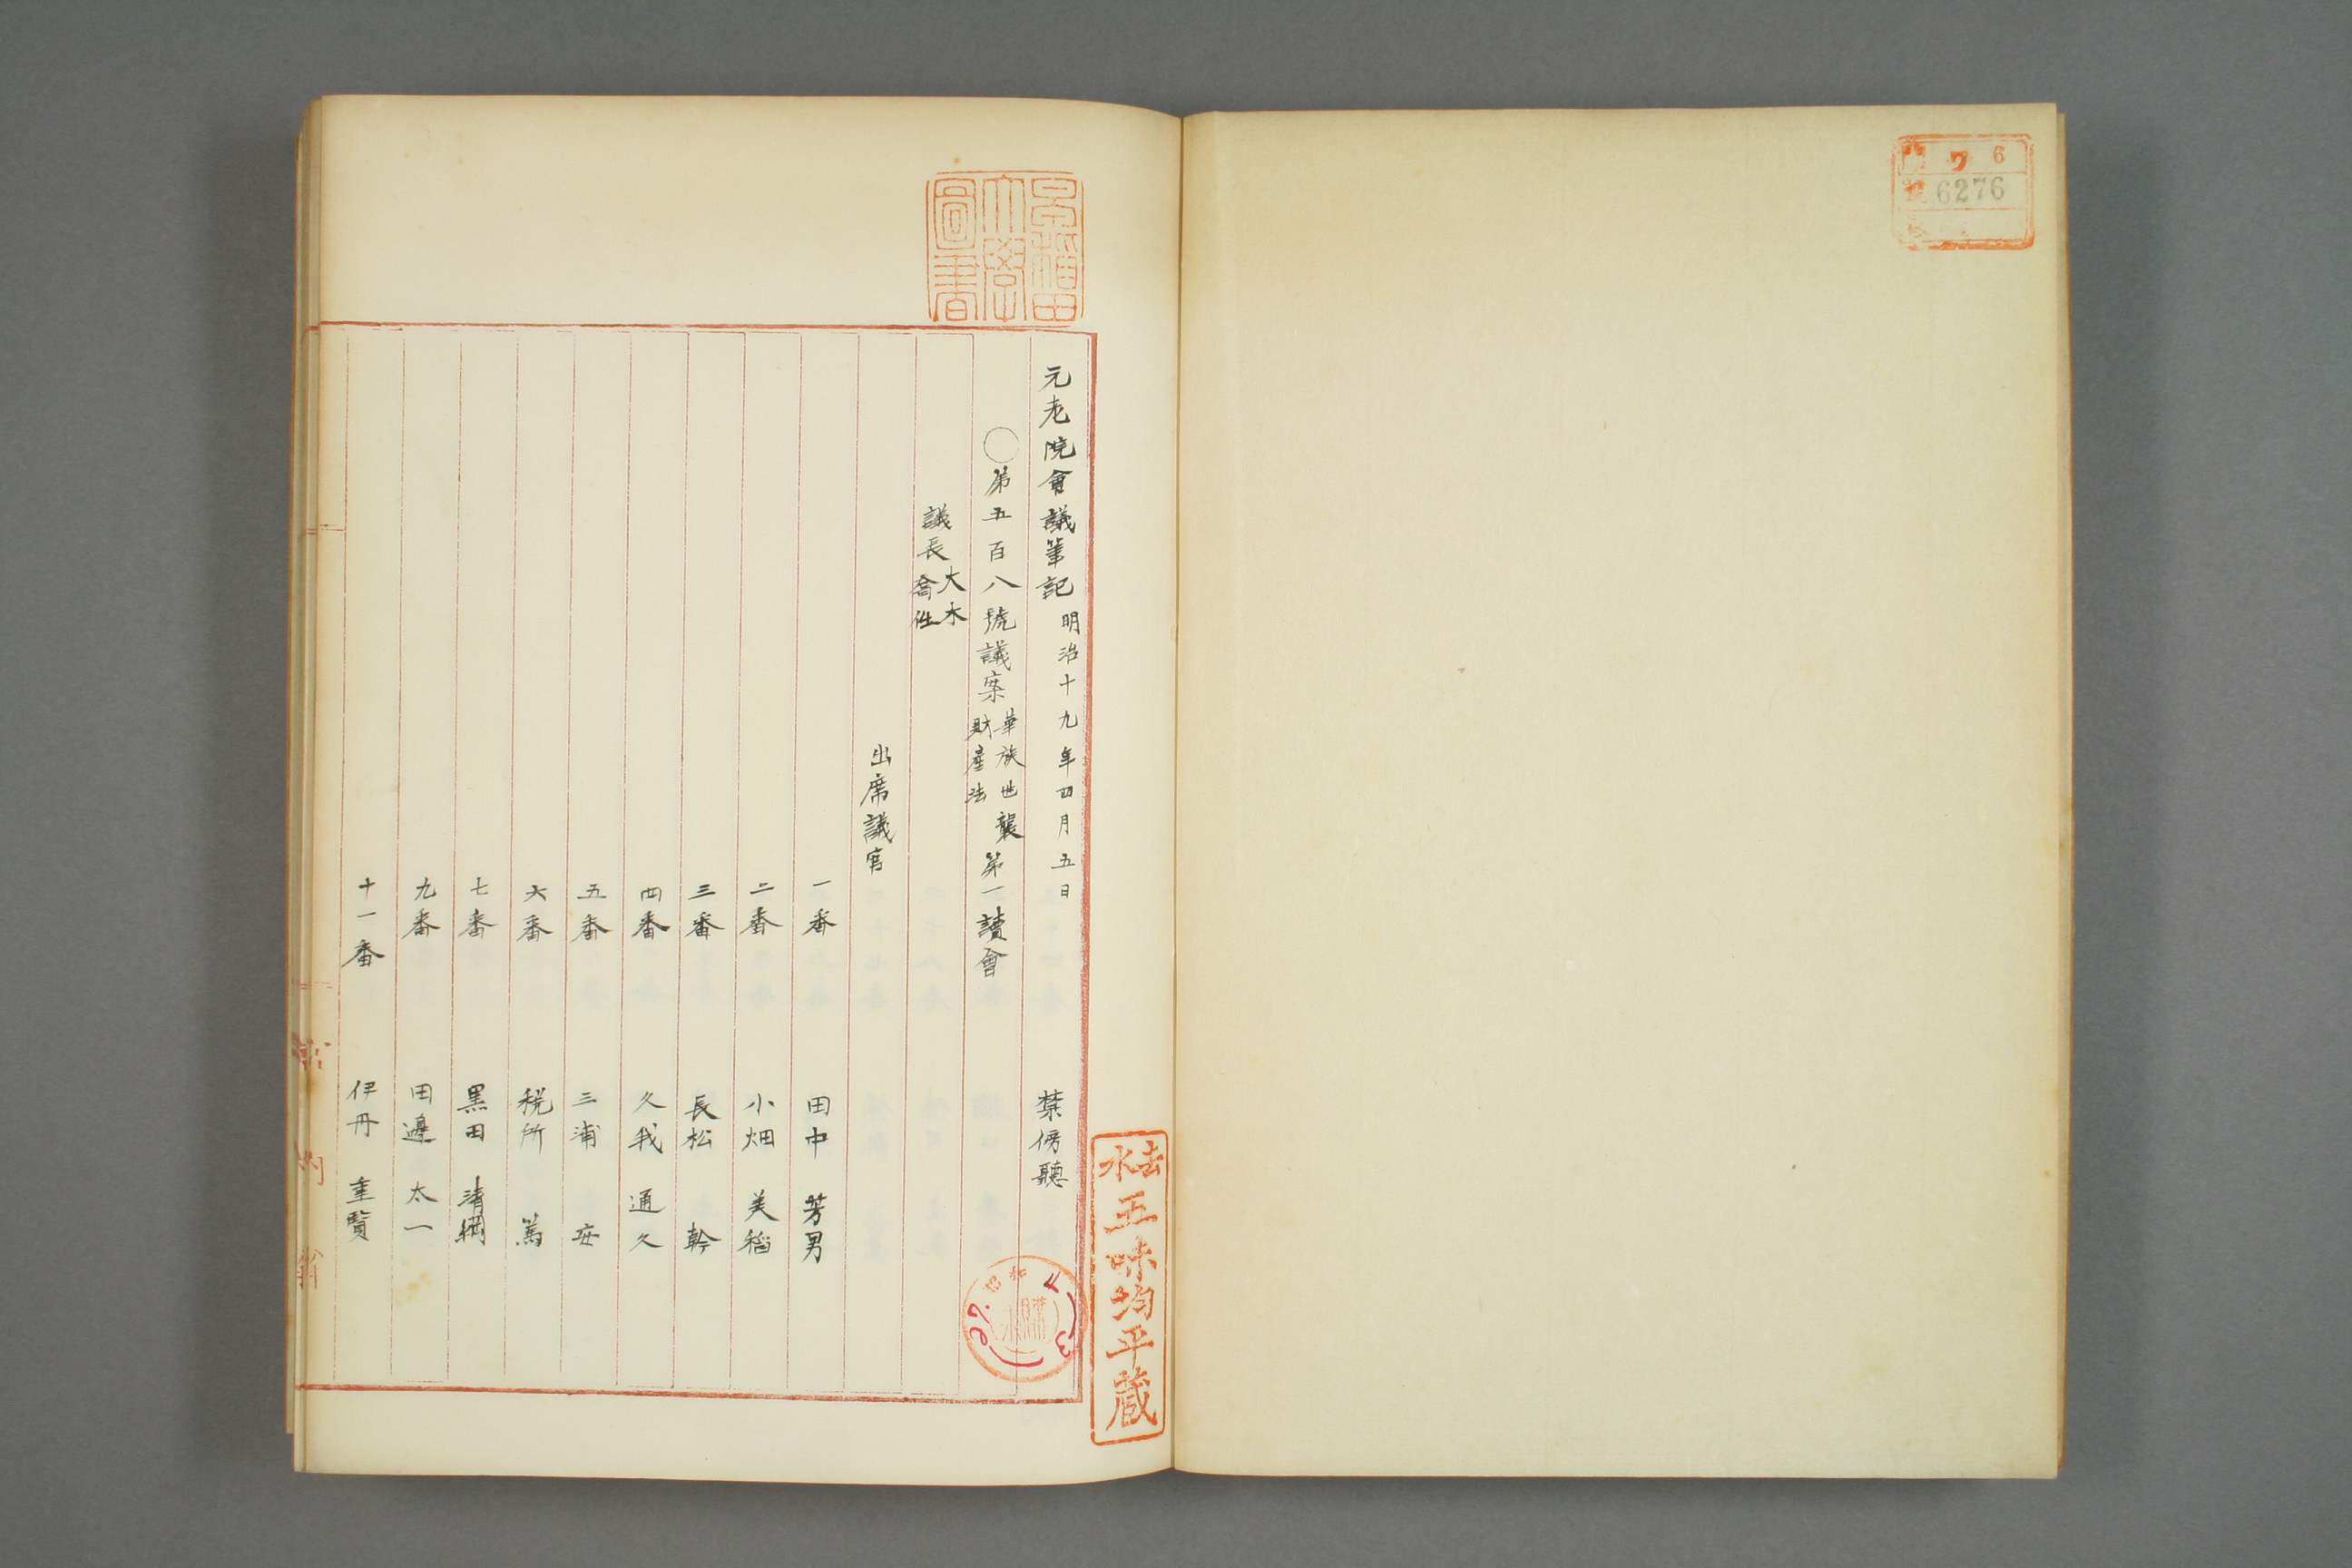 ワ 6
6276
早稲田
大學
圖書
元老院會議筆記 明治十九年四月五日 禁傍聽
○第五百八號議案 華族世襲財產法 第一讀會
議長 大木喬任
出席議官
一番 田中芳男
二番 小畑美稲
三番 長松幹
四番 久我通久
五番 三浦安
六番 税所篤
七番 黒田清綱
九番 田邊太一
十一番 伊丹重賢
五味均平蔵
昭和
購求